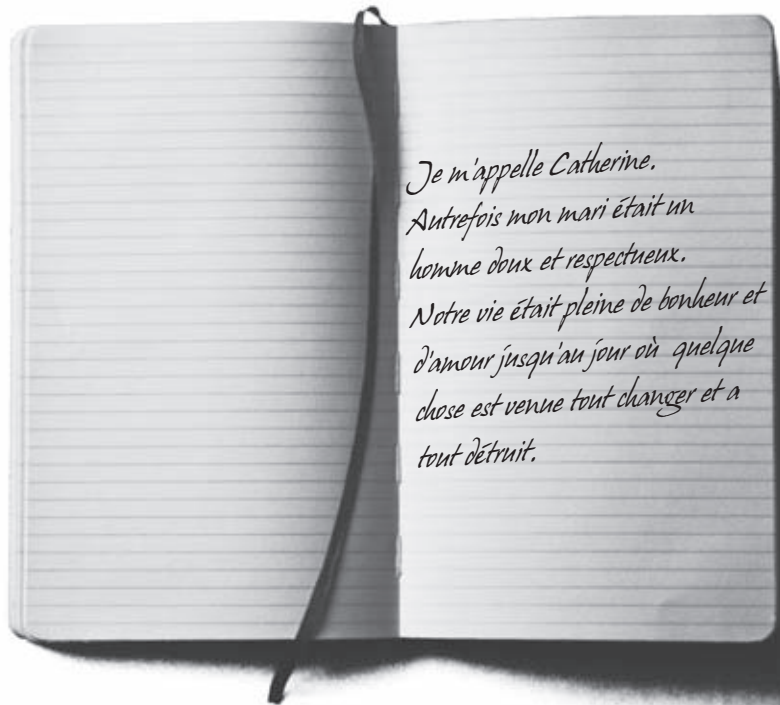 Je m'appelle Catherine.
Autrefois mon mari était un
homme doux et respectueux.
Notre vie était pleine de bonheur et
d'amour jusqu'au jour où quelque
chose est venue tout changer et a
tout détruit.